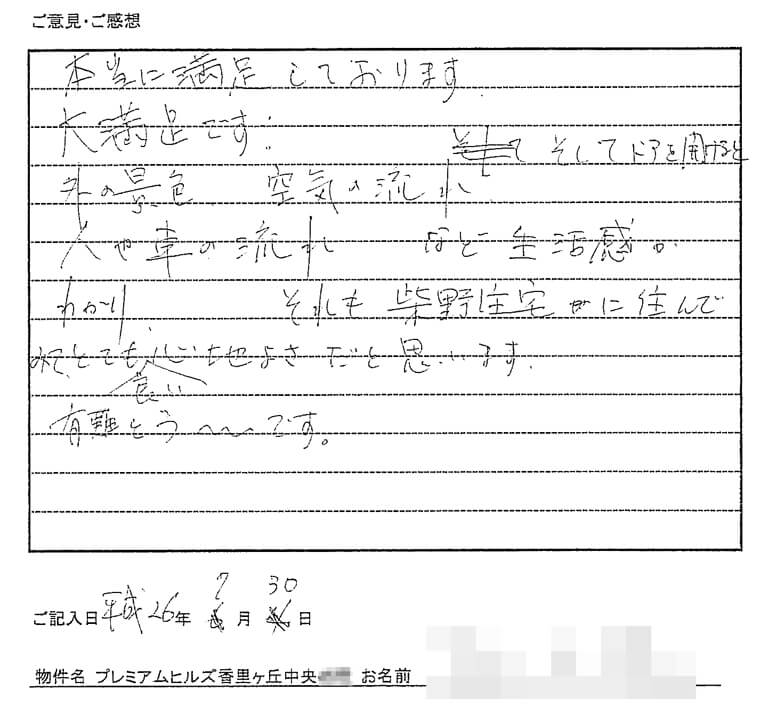 ご意見・ご感想
本当に満足しております
大満足です。
そしてドアを開けると
外の景色 空気の流れ
人や車の流れ など 生活感が
わかり それも 柴野住宅 に住んで
みて、とても心地よさだと思います。
良い
有難とう〜〜です。
7 30
ご記入日 平成26年 月 日
物件名 プレミアムヒルズ香里ヶ丘中央 お名前